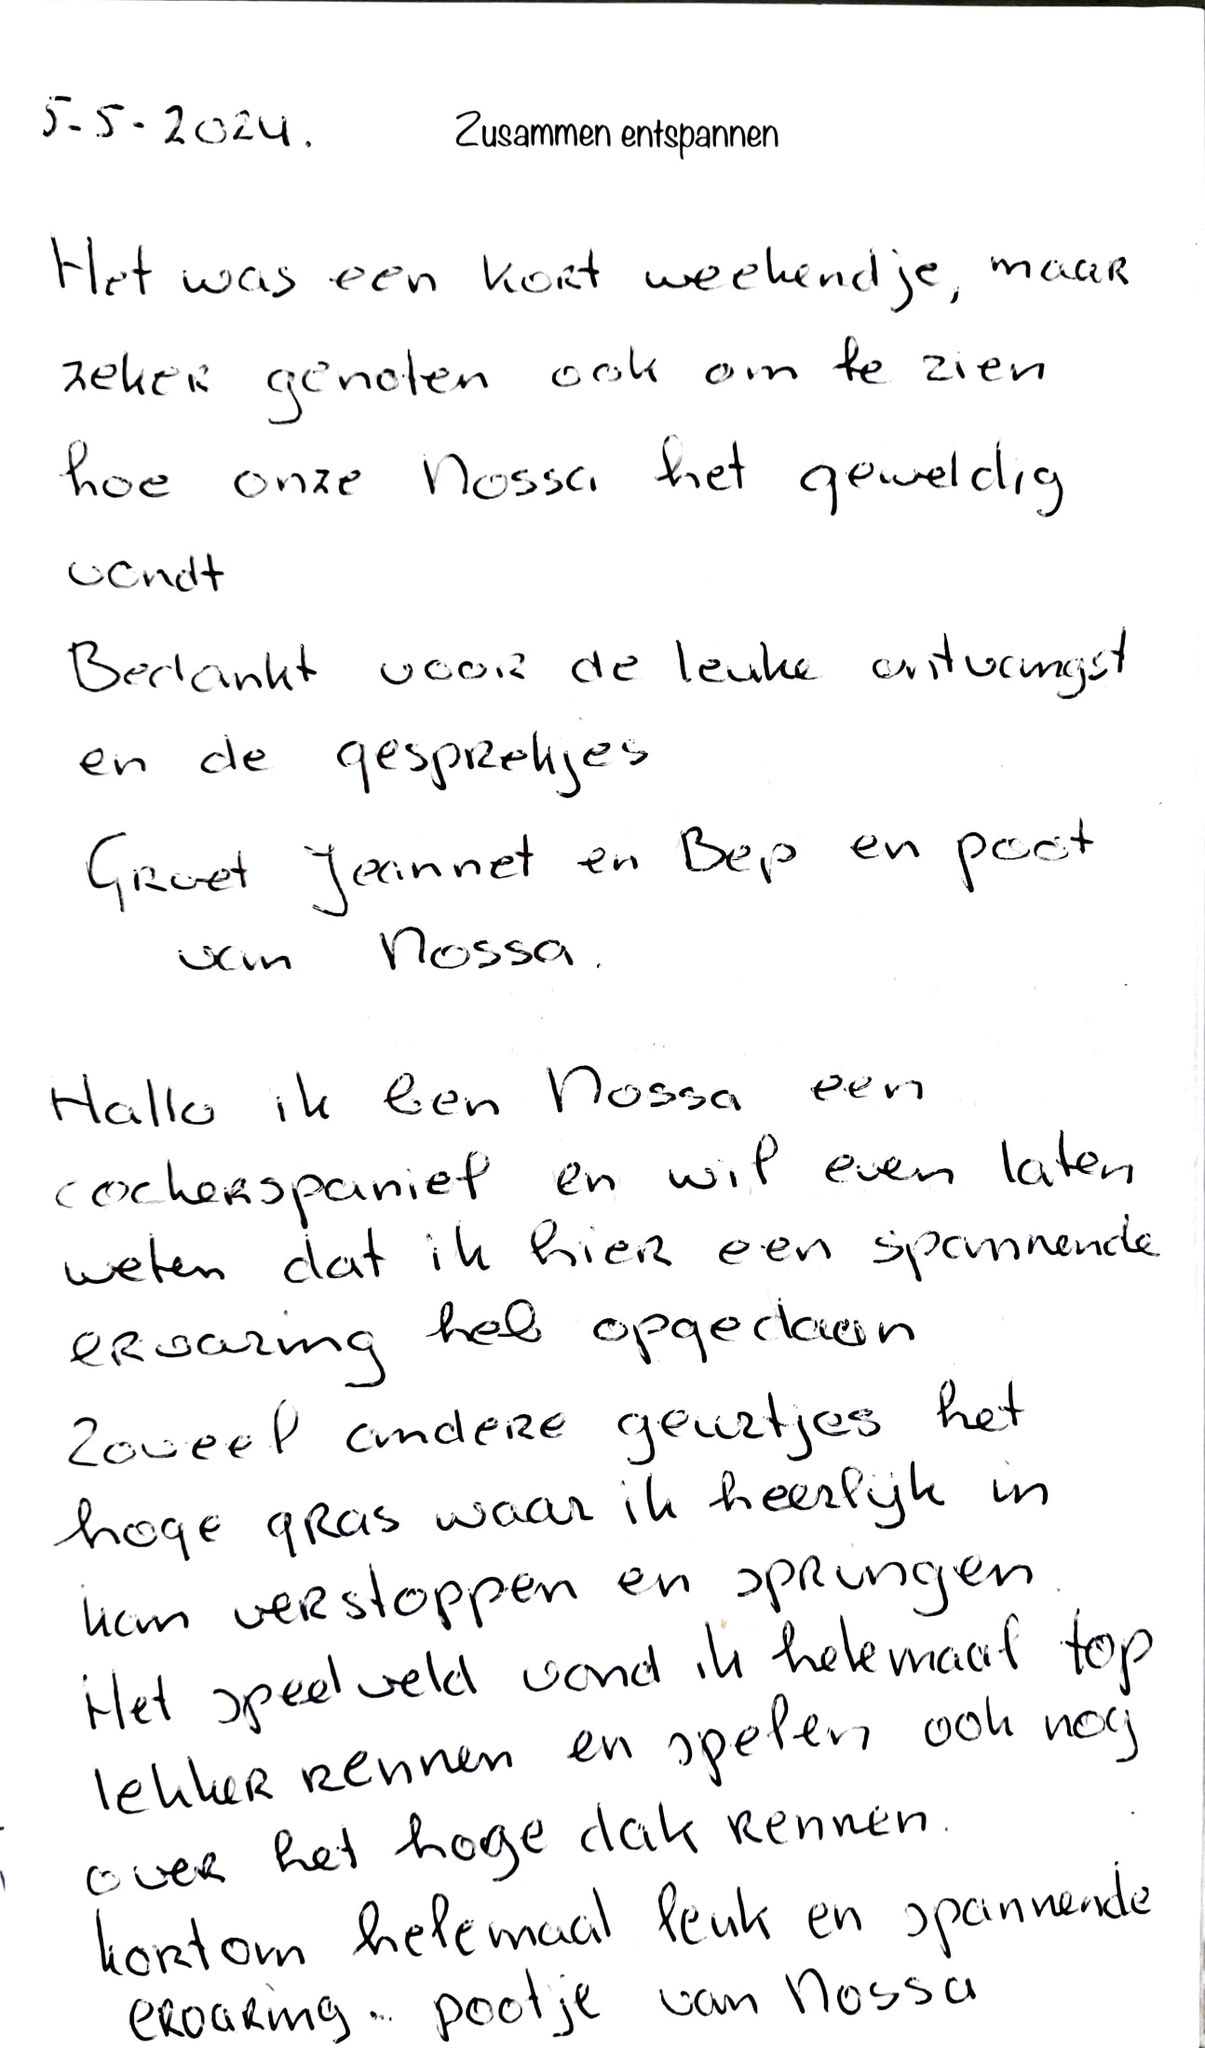 5-5-2024. Zusammen entspannen
Het was een kort weekendje, maar
zeker genoten ook om te zien
hoe onze Nossa het geweldig
vondt
Bedankt voor de leuke ontvangst
en de gesprekjes
Groet Jeannet en Bep en poot
van Nossa.
Hallo ik ben Nossa een
cockerspaniel en wil even laten
weten dat ik hier een spannende
ervaring heb opgedaan
Zoveel andere geurtjes het
hoge gras waar ik heerlijk in
kan verstoppen en springen.
Het speelveld vond ik helemaal top
lekker rennen en spelen ook nog
over het hoge dak rennen.
kortom helemaal leuk en spannende
ervaring.. pootje van Nossa